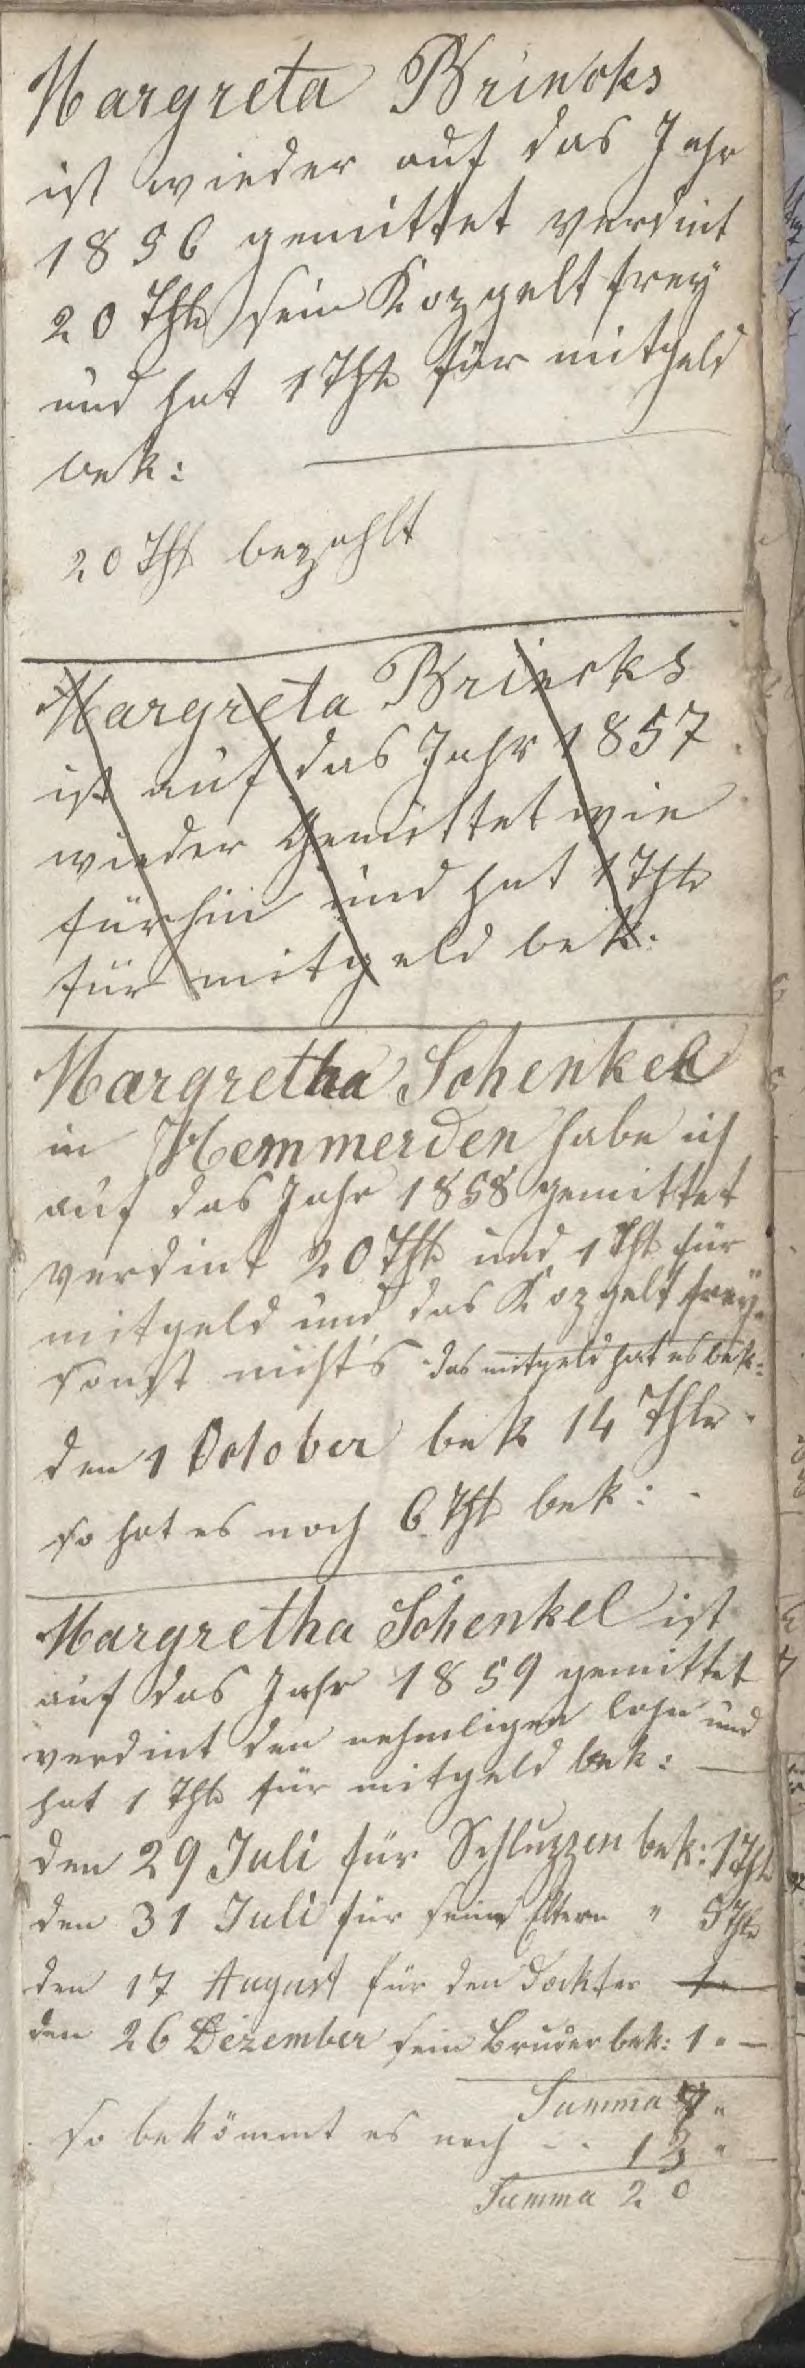 Margreta Brincks
ist wieder auf das Jahr
1856 gemittet verdint
20 Thlr sein Kozgelt frey
und hat 1 Thlr für mitgeld
bek:
20 Thlr bezahlt
Margreta Brincks
ist auf das Jahr 1857
wieder Gemittet wie
fürhin und hat 1 Thlr
für mitgeld bek:
Margretha Schenkel
in Hemmerden habe ich
auf das Jahr 1858 gemittet
verdint 20 Thlr und 1 Thlr für
mitgeld und das Kozgelt frey.
sonst nichts das mitgeld hat es bek:
den 1 October bek 14 Thlr
so hat es noch 6 Thlr bek:
Margretha Schenkel ist
auf das Jahr 1859 gemittet
verdint den nehmligen lohn und
hat 1 Thlr für mitgeld bek: —
den 29 Juli für Schluzzen bek: 1 Thlr
den 31 Juli für seine Eltern " 5 Thlr
den 17 August für den Docktor 1 —
den 26 Dezember sein Bruder bek: 1 " —
Summa 7 "
so bekömmt es noch - - 13 "
Summa 20